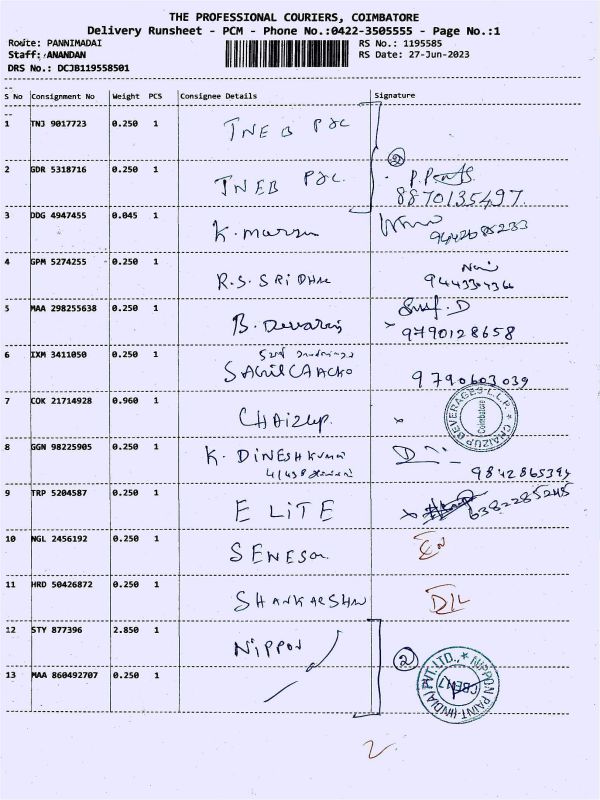 THE PROFESSIONAL COURIERS, COIMBATORE
Delivery Runsheet - PCM - Phone No.:0422-3505555 - Page No.:1
Route: PANNIMADAI RS No.: 1195585
Staff: ANANDAN RS Date: 27-Jun-2023
DRS No.: DCJB119558501
S No Consignment No Weight PCS Consignee Details Signature
1 TNJ 9017723 0.250 1 TNEB
2 GDR 5318716 0.250 1 TNEB
2
8870135497
3 DDG 4947455 0.045 1 K.
4 GPM 5274255 0.250 1 R.S. SRIDHAR
5 MAA 298255638 0.250 1 B. Devaraj
9790128658
6 IXM 3411050 0.250 1
9790603039
7 COK 21714928 0.960 1 CHAIZUP
CHAIZUP BEVERAGES L.L.P. Coimbatore
8 GGN 98225905 0.250 1 K. DINESH KUMAR
9 TRP 5204587 0.250 1 ELITE
6382285245
10 NGL 2456192 0.250 1
11 HRD 50426872 0.250 1
12 STY 877396 2.850 1 NIPPON
2
NIPPON PAINT (INDIA) PVT. LTD.,
13 MAA 860492707 0.250 1
2